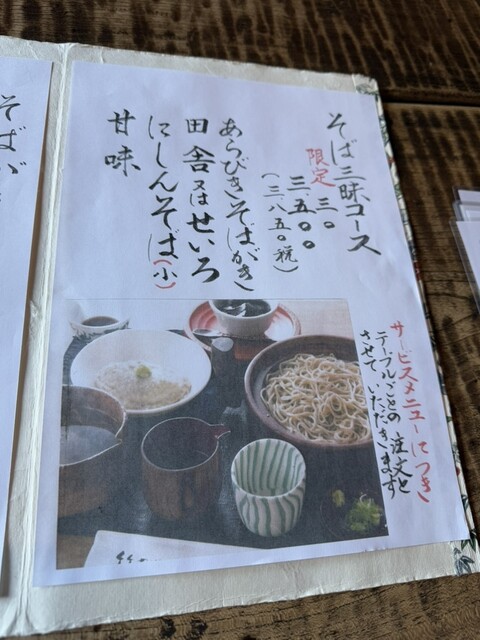 そば三昧コース
限定三〇
三、五〇〇
(三八五〇税)
あらびきそばがき
田舎又はせいろ
にしんそば(小)
甘味
サービスメニューにつき
テーブルごとの注文と
させていただきます
そばが